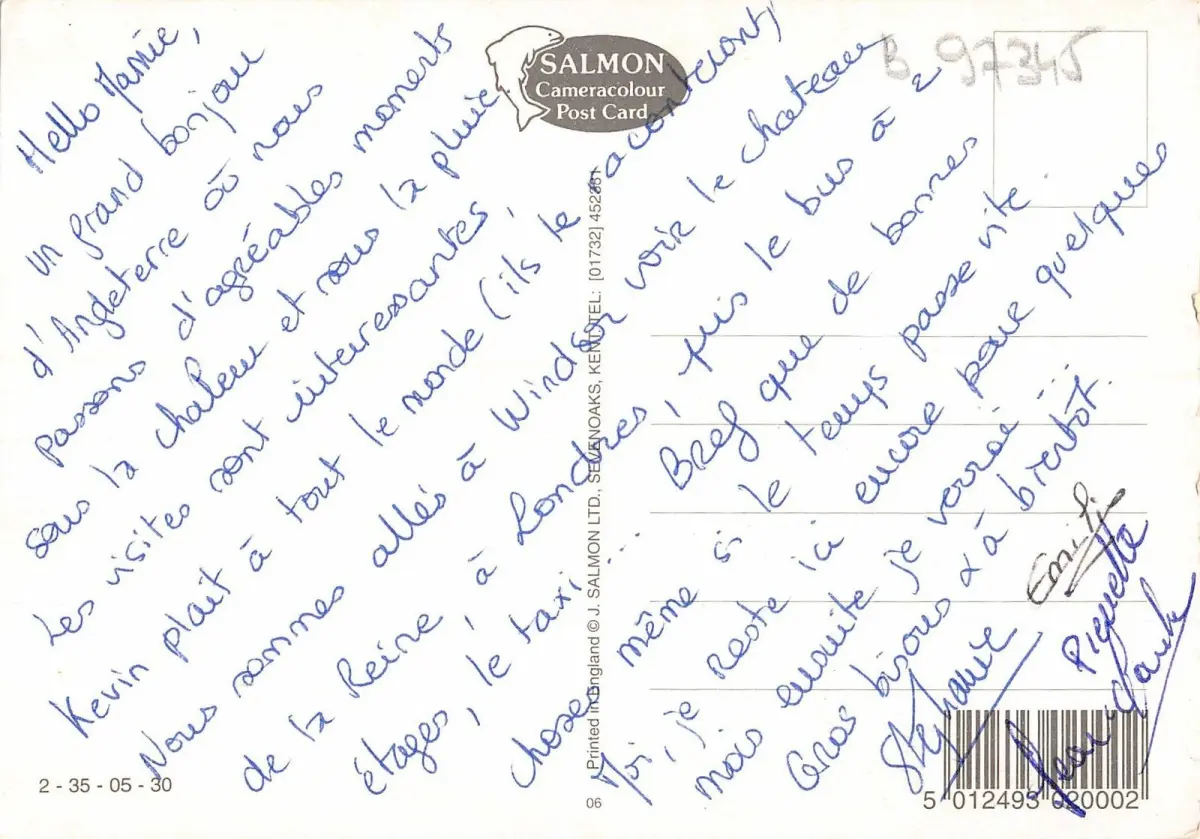 Hello Mamie,
un grand bonjour
d'Angleterre où nous
passons d'agréables moments
sous la chaleur et sous la pluie.
Les visites sont interessantes,
Kevin plait à tout le monde (ils le raconteront)
Nous sommes allés à Windsor voir le chateau
de la Reine, à Londres, puis le bus à 2
étages, le taxi... Bref que de bonnes
choses même si le temps passe vite.
Moi, je reste ici encore pour quelques
mois ensuite je verrai...
Gros bisous & à bientôt.
Stéphanie
Pierrette
Jean Claude
SALMON
Cameracolour
Post Card
B 97345
Printed in England © J. SALMON LTD., SEVENOAKS, KENT. TEL: [01732] 452381
06
2 - 35 - 05 - 30
5 012493 020002